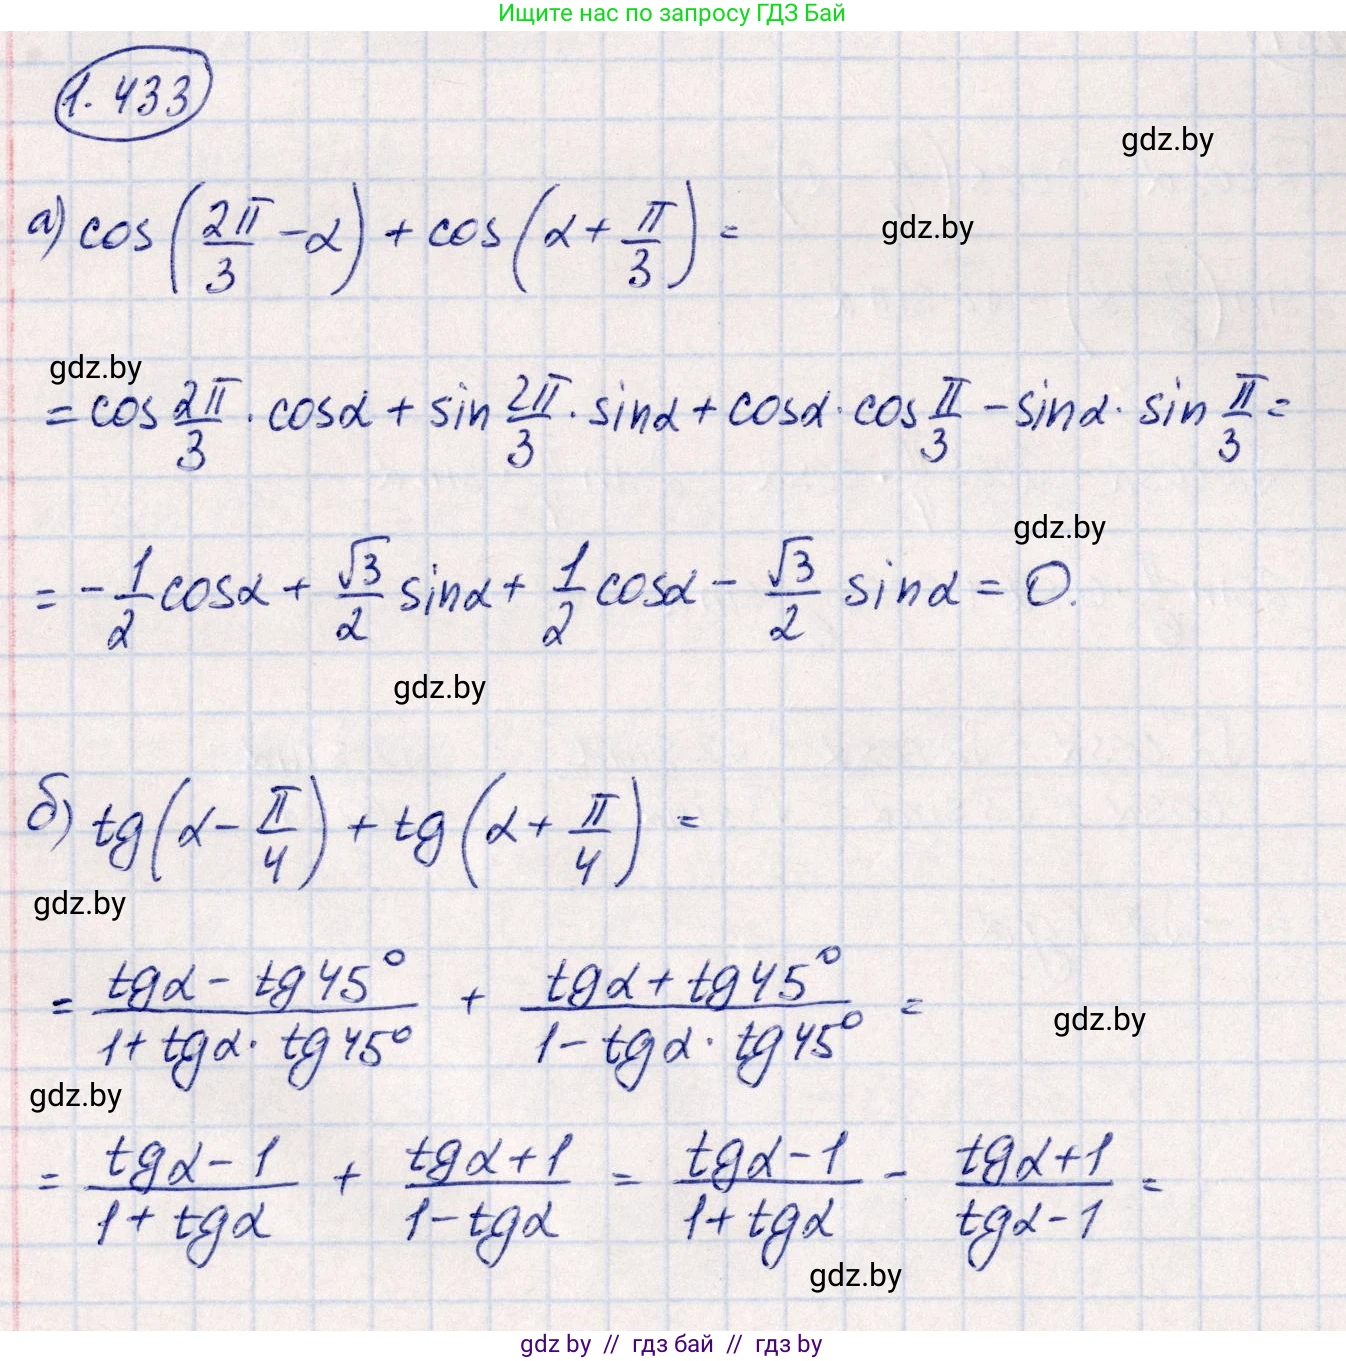 Ищите нас по запросу ГДЗ Бай
1.433
gdz.by
а) cos(2π/3 - α) + cos(α + π/3) =
gdz.by
gdz.by
= cos 2π/3 · cosα + sin 2π/3 · sinα + cosα · cos π/3 - sinα · sin π/3 =
gdz.by
= - 1/2 cosα + √3/2 sinα + 1/2 cosα - √3/2 sinα = 0.
gdz.by
б) tg(α - π/4) + tg(α + π/4) =
gdz.by
= (tgα - tg45°)/(1 + tgα · tg45°) + (tgα + tg45°)/(1 - tgα · tg45°) =
gdz.by
gdz.by
= (tgα - 1)/(1 + tgα) + (tgα + 1)/(1 - tgα) = (tgα - 1)/(1 + tgα) - (tgα + 1)/(tgα - 1) =
gdz.by
gdz by // гдз бай // гдз by